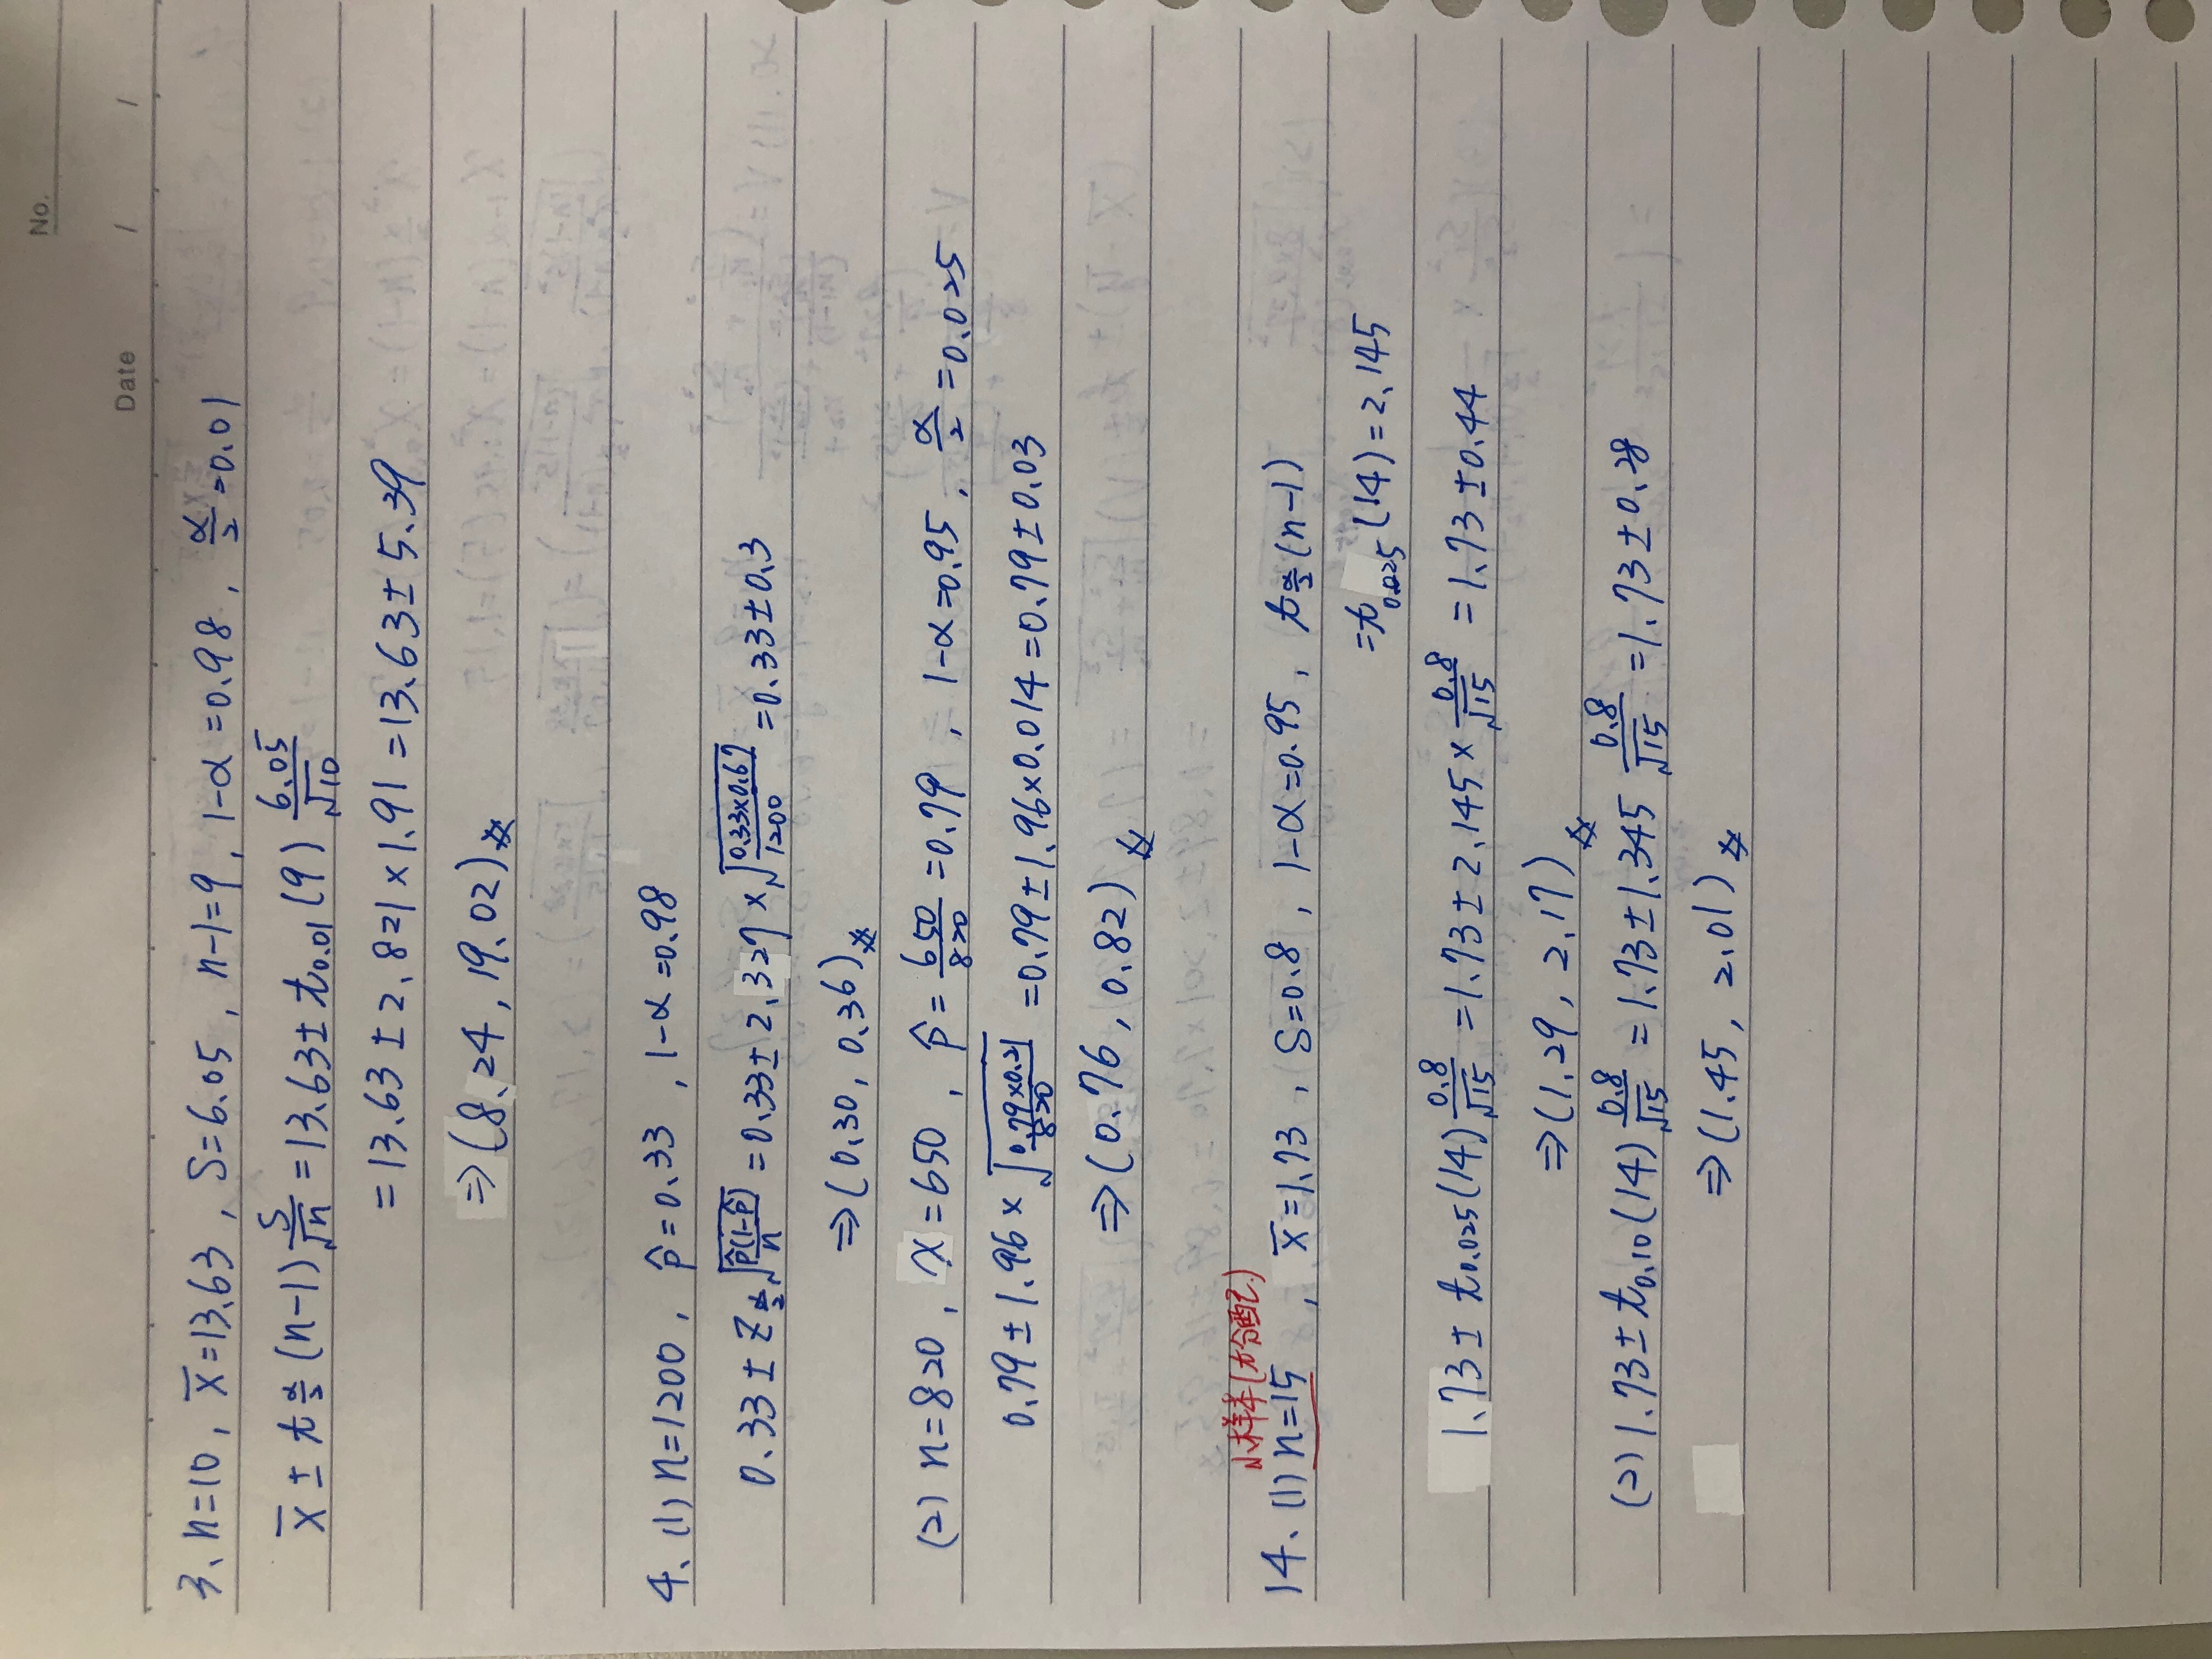 No.
Date / /
3、n=10, x̄=13.63, S=6.05, n-1=9, 1-α=0.98, α/2=0.01
x̄ ± t α/2 (n-1) S/√n = 13.63 ± t0.01 (9) 6.05/√10
= 13.63 ± 2.821 × 1.91 = 13.63 ± 5.39
⇒ (8.24, 19.02)
4、(1) n=1200, p̂=0.33, 1-α=0.98
0.33 ± Z α/2 √(p̂(1-p̂)/n) = 0.33 ± 2.327 × √(0.33×0.67/1200) = 0.33 ± 0.3
⇒ (0.30, 0.36)
(2) n=820, x=650, p̂ = 650/820 = 0.79, 1-α=0.95, α/2=0.025
0.79 ± 1.96 × √(0.79×0.21/820) = 0.79 ± 1.96 × 0.014 = 0.79 ± 0.03
⇒ (0.76, 0.82)
小樣本(t分配)
14、(1) n=15, x̄=1.73, S=0.8, 1-α=0.95, t α/2 (n-1)
= t0.025 (14) = 2.145
1.73 ± t0.025 (14) 0.8/√15 = 1.73 ± 2.145 × 0.8/√15 = 1.73 ± 0.44
⇒ (1.29, 2.17)
(2) 1.73 ± t0.10 (14) 0.8/√15 = 1.73 ± 1.345 0.8/√15 = 1.73 ± 0.28
⇒ (1.45, 2.01)